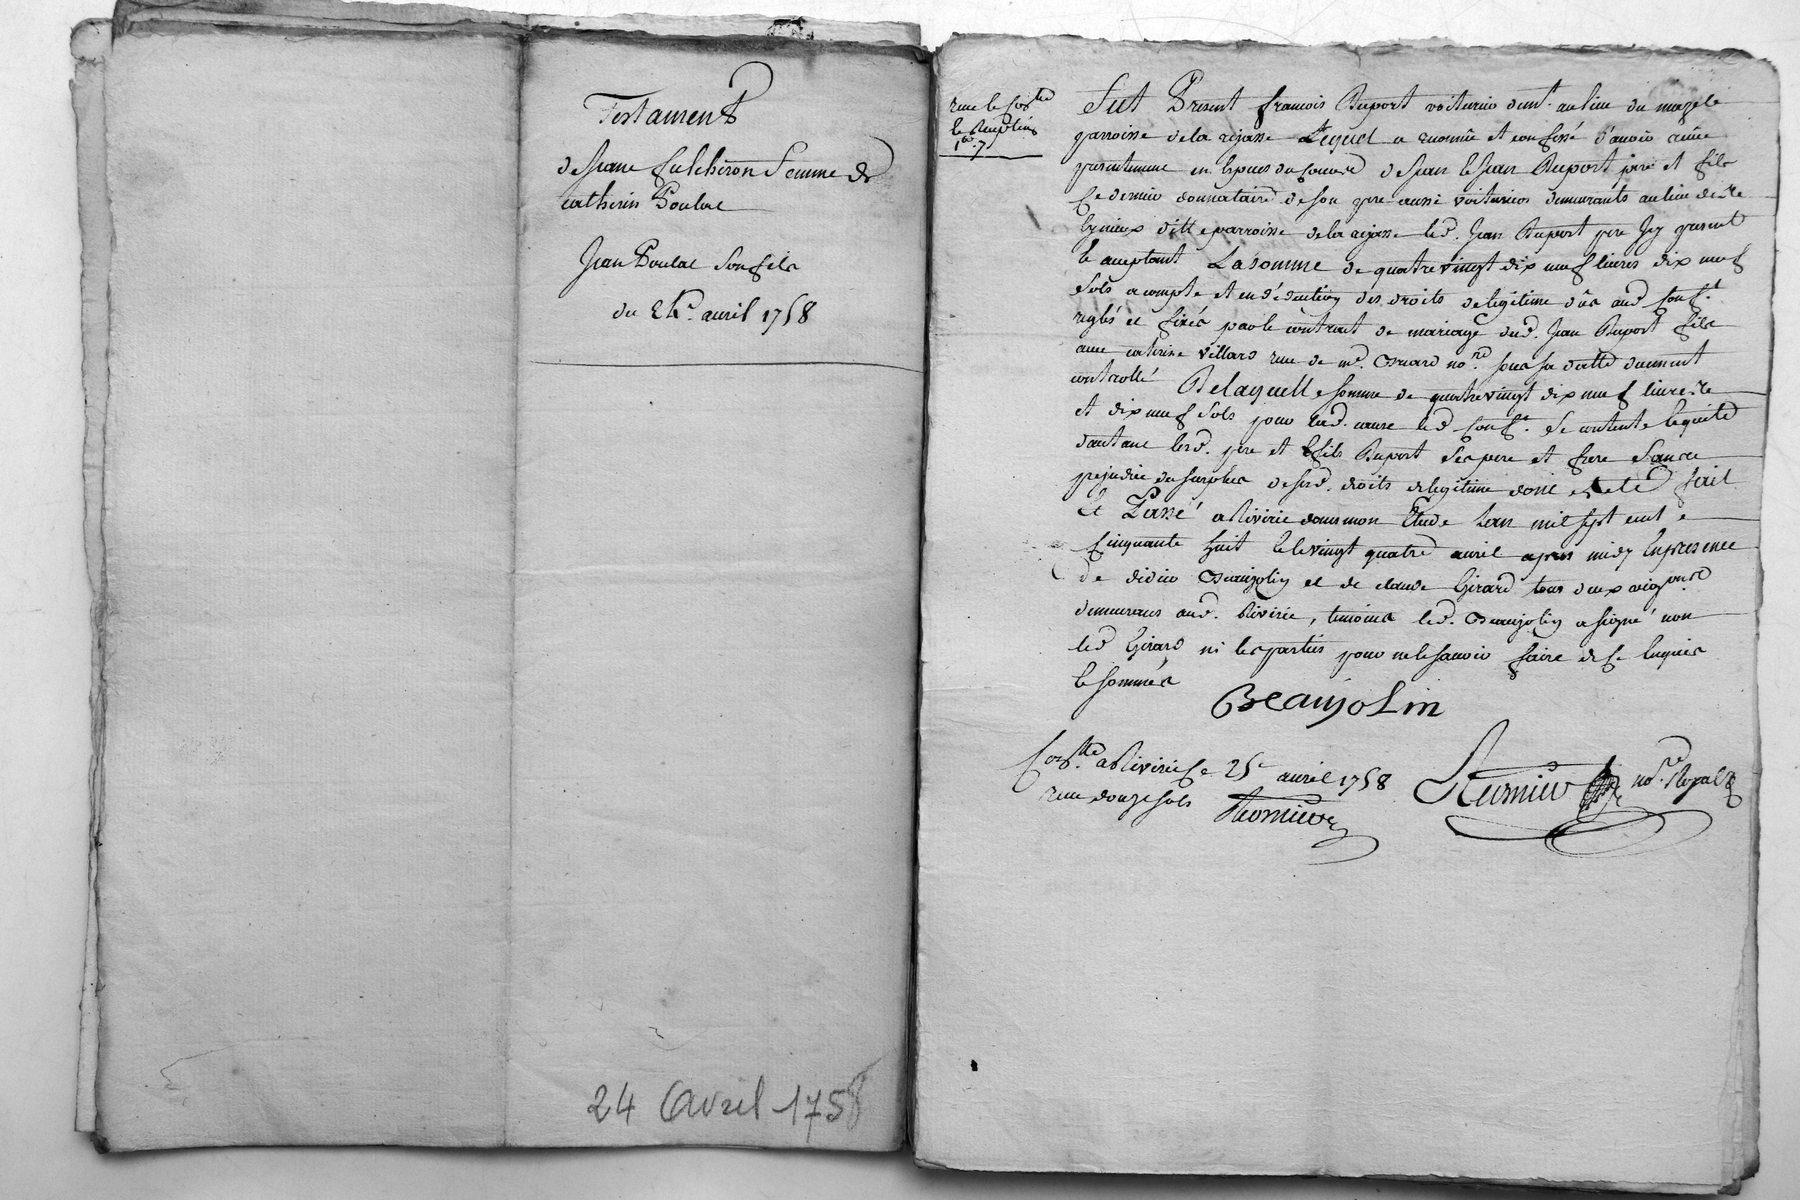 Testament
de Jeanne fulchiron Femme de
catherin Poulat
Jean Poulat son fils
du 24e. avril 1758
24 Avril 1758
reçu le cont.le
et Expédiés
Fut Présent françois Duport voiturier dem.t au lieu du mazel
parroisse de la rejasse Lequel a reconnû et confessé d'avoir reçû
presentement en Espèces du cours de Jean et Jean Duport pere et fils
Ce dernier donnataire de son pere aussi voituriers demeurants au lieu de
ditte parroisse de la rejasse led. Jean Duport pere Icy present
et acceptant La somme de quatre vingt dix neuf livres dix neuf
sols a compte et en déduction des droits de legitime dûs aud. conf.t
reglés et fixés par le contrat de mariage dud. Jean Duport fils
avec caterine villard reçu de me. no.re sous sa datte duement
controllé De laquelle somme de quatre vingt dix neuf livres
et dix neuf sols pour lad. cause led. conf.t se contente et quitte
d'autant lesd. pere et fils Duport ses pere et frere sans
prejudice du surplus de sesd. droits de legitime dont acte fait
et Passé a Riverie dans mon Etude L'an mil sept cent
Cinquante huit et le vingt quatre avril apres midy En presence
de didier Beaujolin et de claude Girard tous deux
demeurans aud. Riverie, temoins led. Beaujolin a signé non
led. Girard ni les parties pour ne le savoir faire de ce Enquis
et sommés
Beaujolin
Cont.lle a Riverie Ce 25e avril 1758
reçu douze sols
no.re Royal